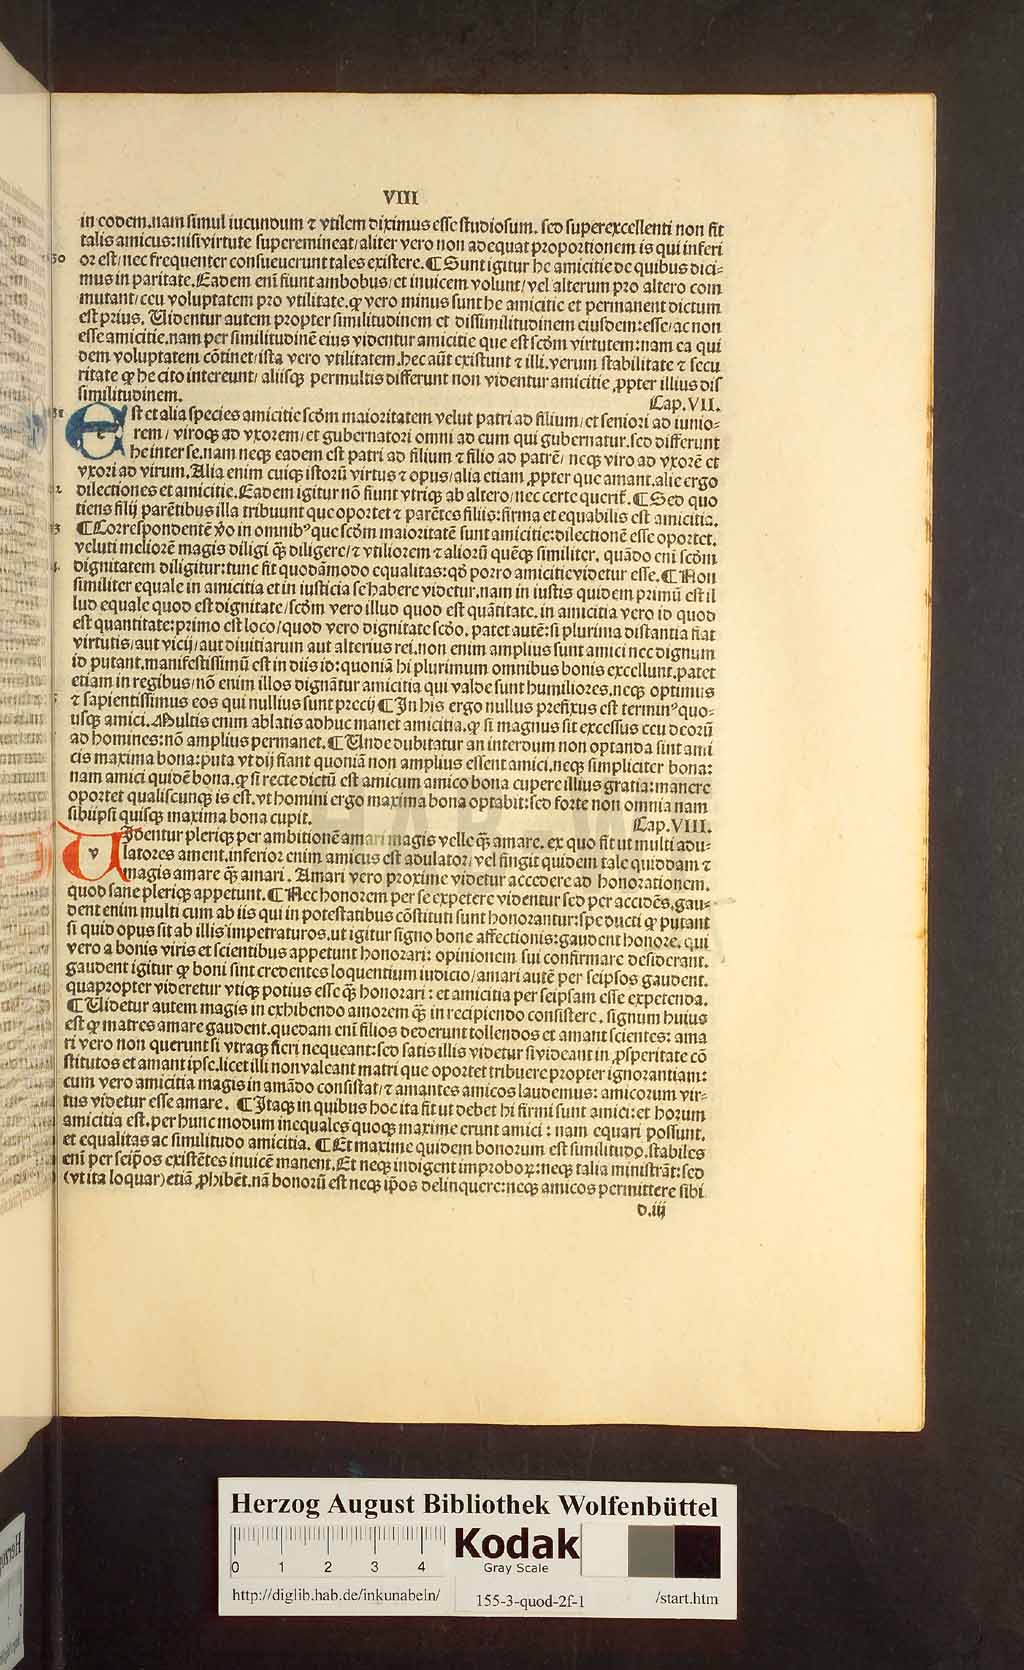 VIII
in eodem.nam simul iucundum ⁊ vtilem diximus esse studiosum. sed superexcellenti non fit
talis amicus:nisi virtute superemineat/aliter vero non adequat proportionem is qui inferi
or est/nec frequenter consueuerunt tales existere.¶Sunt igitur he amicitie de quibus dici⸗
mus in paritate.Eadem em̄ fiunt ambobus/et inuicem volunt/vel alterum pro altero com
mutant/ceu voluptatem pro vtilitate.ꝙ vero minus sunt he amicitie et permanent dictum
est prius. Uidentur autem propter similitudinem et dissimilitudinem eiusdem:esse/ac non
esse amicitie.nam per similitudinē eius videntur amicitie que est scđm virtutem:nam ea qui
dem voluptatem cōtinet/ista vero vtilitatem.hec aūt existunt ⁊ illi.verum stabilitate ⁊ secu
ritate ꝙ he cito intereunt/ aliisqꝫ permultis differunt non videntur amicitie ꝓpter illius dis
similitudinem.
Cap.VII.
Est et alia species amicitie scđm maioritatem velut patri ad filium/et seniori ad iunio⸗
rem/ viroqꝫ ad vxorem/et gubernatori omni ad eum qui gubernatur.sed differunt
he inter se.nam neqꝫ eadem est patri ad filium ⁊ filio ad patrē/ neqꝫ viro ad vxorē et
vxori ad virum.Alia enim cuiqꝫ istorū virtus ⁊ opus/alia etiam ꝓpter que amant.alie ergo
dilectiones et amicitie.Eadem igitur nō fiunt vtriqꝫ ab altero/nec certe querit̄.¶Sed quo
tiens filij parētibus illa tribuunt que oportet ⁊ parētes filiis:firma et equabilis est amicitia.
¶Correspondentē v̄o in omnibꝰ que scđm maioritatē sunt amicitie:dilectionē esse oportet.
veluti meliorē magis diligi qꝫ̄ diligere/⁊ vtiliorem ⁊ aliorū quēqꝫ similiter. quādo em̄ scđm
dignitatem diligitur:tunc fit quodāmodo equalitas:qđ porro amicitie videtur esse.¶Non
similiter equale in amicitia et in iusticia se habere videtur.nam in iustis quidem primū est il
lud equale quod est dignitate/scđm vero illud quod est quātitate. in amicitia vero id quod
est quantitate:primo est loco/quod vero dignitate scđo. patet autē:si plurima distantia fiat
virtutis/aut vicij/aut diuitiarum aut alterius rei.non enim amplius sunt amici nec dignum
id putant.manifestissimū est in diis id:quoniā hi plurimum omnibus bonis excellunt.patet
etiam in regibus/nō enim illos dignātur amicitia qui valde sunt humiliores.neqꝫ optimus
⁊ sapientissimus eos qui nullius sunt precij¶In his ergo nullus prefixus est terminꝰquo⸗
usqꝫ amici.Multis enim ablatis adhuc manet amicitia.ꝙ si magnus sit excessus ceu deorū
ad homines:nō amplius permanet.¶Unde dubitatur an interdum non optanda sint ami
cis maxima bona:puta vt dij fiant quoniā non amplius essent amici.neqꝫ simpliciter bona:
nam amici quidē bona.ꝙ si recte dictū est amicum amico bona cupere illius gratia:manere
oportet qualiscunqꝫ is est.vt homini ergo maxima bona optabit:sed forte non omnia nam
sibiipsi quisqꝫ maxima bona cupit.
Cap.VIII.
UIdentur pleriqꝫ per ambitionē amari magis velle qꝫ̄ amare. ex quo fit ut multi adu⸗
latores ament.inferior enim amicus est adulator/vel fingit quidem tale quiddam ⁊
magis amare qꝫ̄ amari. Amari vero proxime videtur accedere ad honorationem.
quod sane pleriqꝫ appetunt.¶Nec honorem per se expetere videntur sed per accidēs.gau⸗
dent enim multi cum ab iis qui in potestatibus cōstituti sunt honorantur:spe ducti ꝙ putant
si quid opus sit ab illis impetraturos.ut igitur signo bone affectionis:gaudent honore. qui
vero a bonis viris et scientibus appetunt honorari: opinionem sui confirmare desiderant.
gaudent igitur ꝙ boni sint credentes loquentium iudicio/amari autē per seipsos gaudent.
quapropter videretur vtiqꝫ potius esse qꝫ̄ honorari: et amicitia per seipsam esse expetenda.
¶Uidetur autem magis in exhibendo amorem qꝫ̄ in recipiendo consistere. signum huius
est ꝙ matres amare gaudent.quedam em̄ filios dederunt tollendos et amant scientes: ama
ri vero non querunt si vtraqꝫ fieri nequeant:sed satis illis videtur si videant in ꝓsperitate cō
stitutos et amant ipse.licet illi non valeant matri que oportet tribuere propter ignorantiam:
cum vero amicitia magis in amādo consistat/⁊ amantes amicos laudemus: amicorum vir⸗
tus videtur esse amare. ¶Itaqꝫ in quibus hoc ita fit ut debet hi firmi sunt amici:et horum
amicitia est.per hunc modum inequales quoqꝫ maxime erunt amici: nam equari possunt.
et equalitas ac similitudo amicitia. ¶Et maxime quidem bonorum est similitudo.stabiles
em̄ per seip̄os existētes inuicē manent.Et neqꝫ indigent improboꝝ:neqꝫ talia ministrāt:sed
(vt ita loquar)etiā ꝓhibēt.nā bonorū est neqꝫ ip̄os delinquere:neqꝫ amicos permittere sibi
d.iij
Herzog August Bibliothek Wolfenbüttel
0 1 2 3 4
Kodak
Gray Scale
http://diglib.hab.de/inkunabeln/
155-3-quod-2f-1
/start.htm